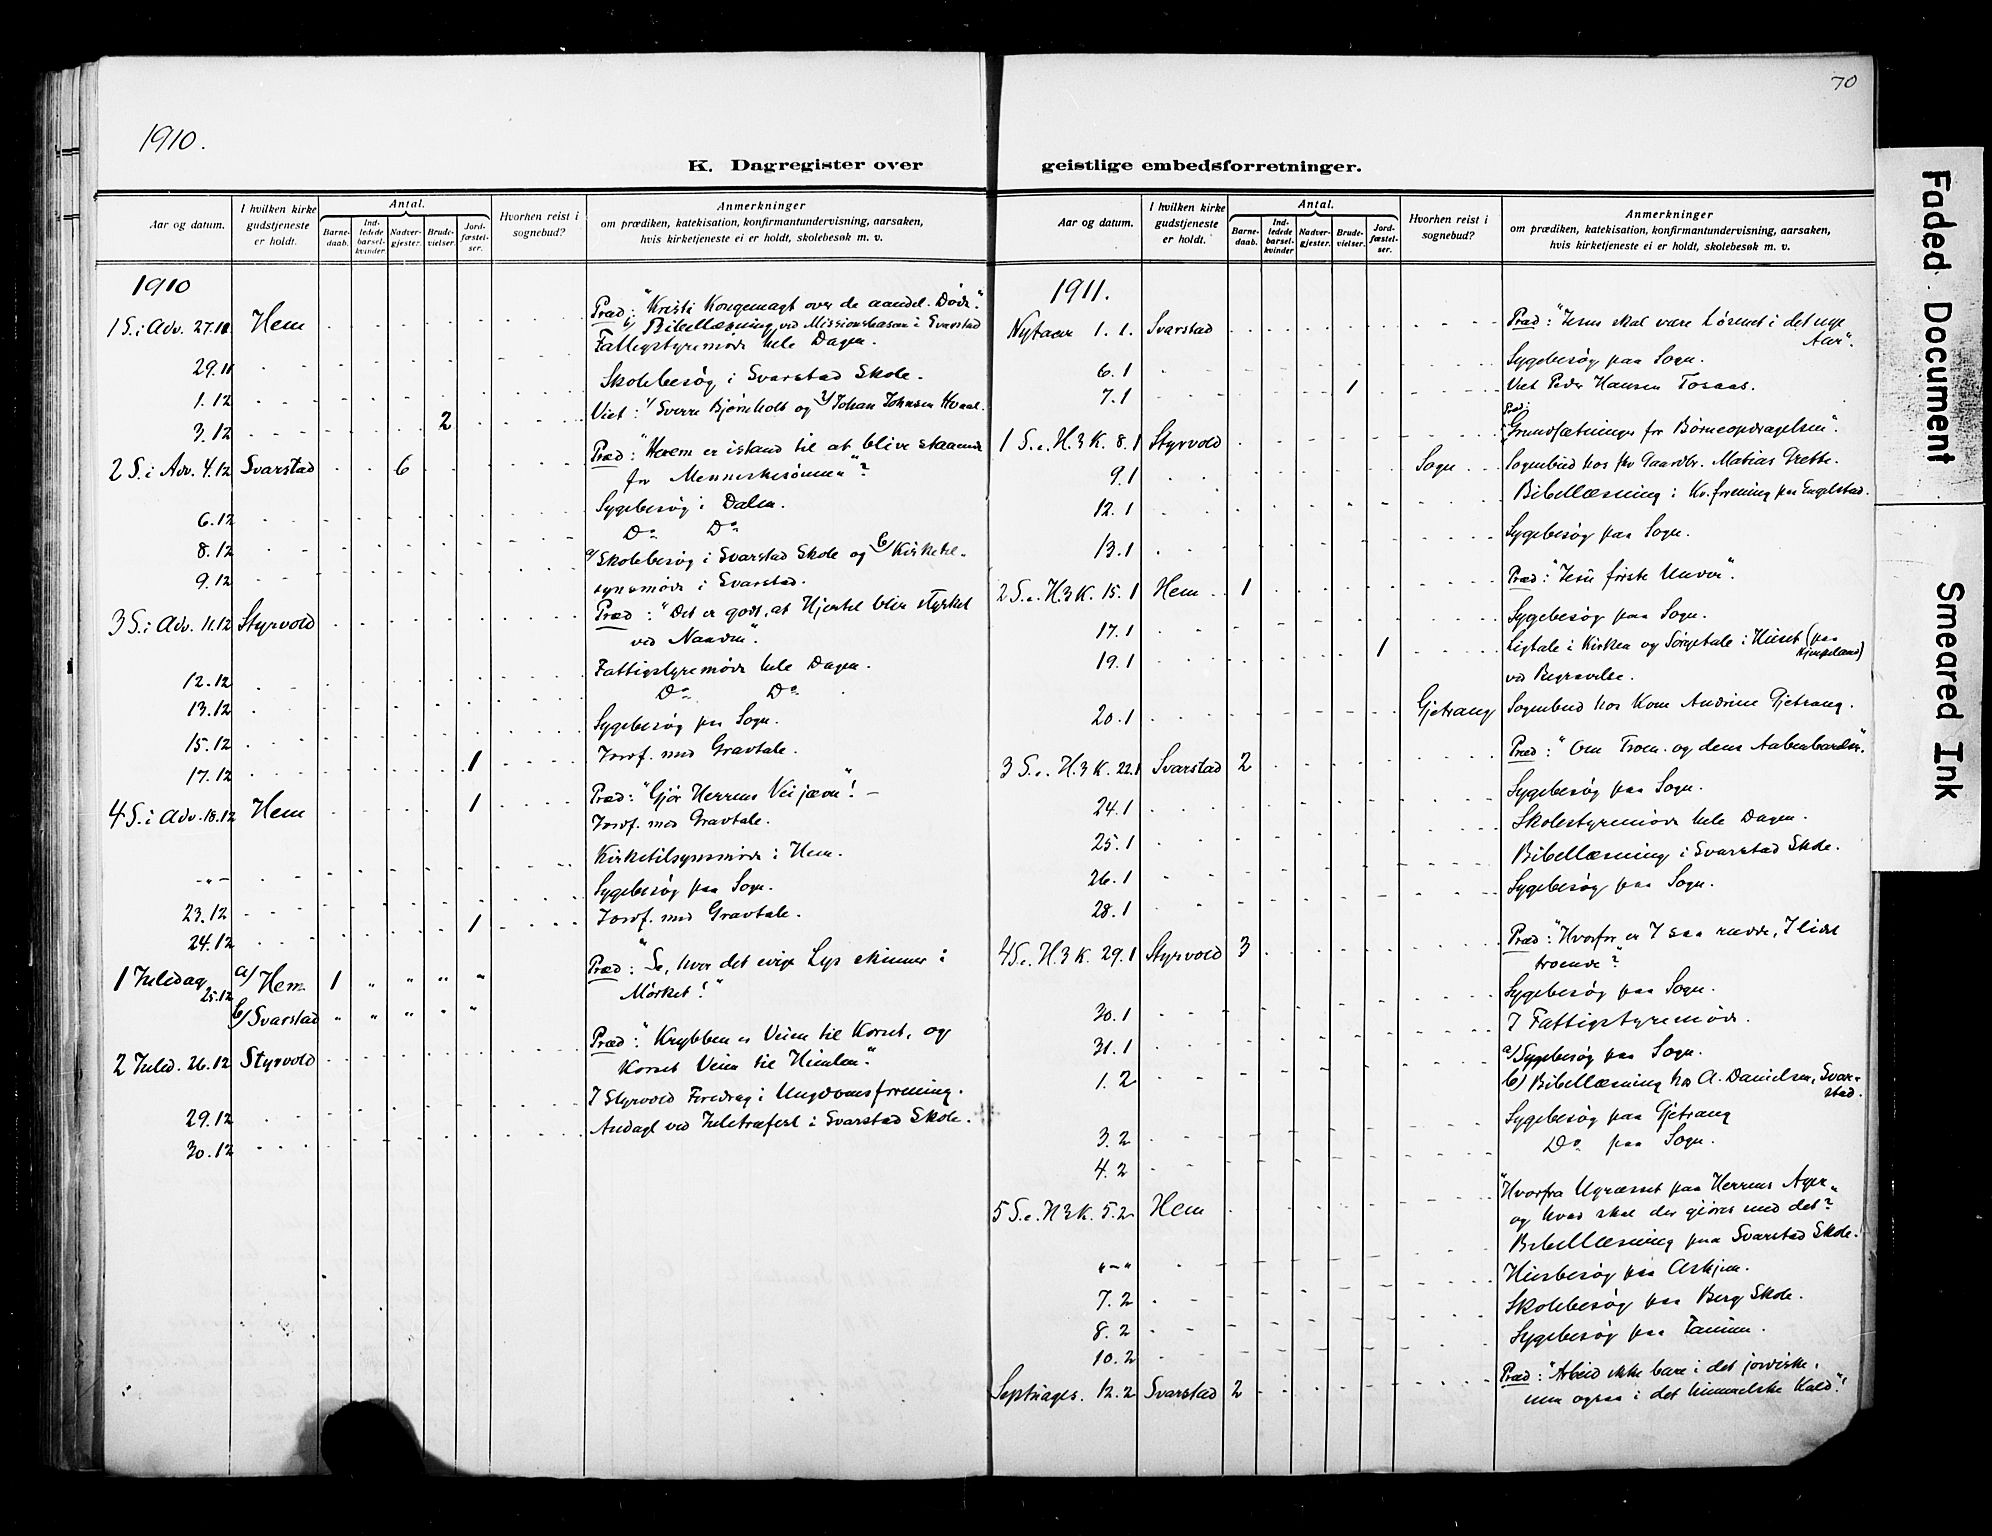 70
1910.
K. Dagregister over geistlige embedsforretninger.
Aar og datum.
I hvilken kirke gudstjeneste er holdt.
Antal.
Barnedaab.
Indledede barselkvinder.
Nadvergjester.
Brudevielser.
Jordfæstelser.
Hvorhen reist i sognebud?
Anmerkninger
om prædiken, katekisation, konfirmantundervisning, aarsaken,
hvis kirketjeneste ei er holdt, skolebesøk m. v.
1910
1 S. i Adv. 27.11 Hem Præd: "Kristi Kongemagt over de aandel. Døde."
b/ Bibellæsning ved Missionsbasar i Svarstad
29.11 Fattigstyremøde hele Dagen.
1.12 Skolebesøg i Svarstad Skole.
3.12 2 Viet: 1/ Sverre Bjørnholt og 2/ Johan Johnsen Hvaal.
2 S. i Adv. 4.12 Svarstad 6 Præd: "Hvem er istand til at blive staaende
for Menneskesønnen"?
6.12 Sygebesøg i Dalen.
8.12 Do Do
9.12 a/ Skolebesøg i Svarstad Skole og b/ Kirketil-
synsmøde i Svarstad.
3 S. i Adv. 11.12 Styrvold Præd: "Det er godt, at Hjertet blir styrket
ved Naaden".
12.12 Fattigstyremøde hele Dagen.
13.12 Do Do
15.12 Sygebesøg paa Sogn.
17.12 1 Jordf. med Gravtale.
4 S. i Adv. 18.12 Hem 1 Præd: "Gjør Herrens Vei jævn"! -
Jordf. med Gravtale.
-"- Kirketilsynsmøde i Hem.
23.12 Sygebesøg paa Sogn.
24.12 1 Jordf. med Gravtale.
1 Juledag 25.12 a/ Hem 1 " " " " Præd: "Se, hvor det evige Lys skinner i
Mørket!"
b/ Svarstad " " " " "
2 Juled. 26.12 Styrvold Præd: "Krybben er Veien til Korset, og
Korset Veien til Himlen."
29.12 I Styrvold Foredrag i Ungdomsforening.
30.12 Andagt ved Juletræfest i Svarstad Skole.
Aar og datum.
I hvilken kirke gudstjeneste er holdt.
Antal.
Barnedaab.
Indledede barselkvinder
Nadvergjester.
Brudevielser.
Jordfæstelser.
Hvorhen reist i sognebud?
Anmerkninger
om prædiken, katekisation, konfirmantundervisning, aarsaken,
hvis kirketjeneste ei er holdt, skolebesøk m. v.
1911.
Nytaar 1.1. Svarstad Præd: "Jesus skal være Løsenet i det nye
Aar".
6.1 Sygebesøg paa Sogn.
7.1 1 Viet Peder Hansen Tosaas.
1 S. e. H.3 K. 8.1 Styrvold Præd: "Grundsætninger for Børneopdragelsen".
9.1 Sogn Sognebud hos fhv Gaardbr. Matias Grette.
12.1 Bibellæsning i Kv.forening paa Engelstad.
13.1 Sygebesøg paa Sogn.
2 S. e. H.3 K. 15.1 Hem 1 Præd: "Jesu første Under".
17.1 Sygebesøg paa Sogn.
19.1 1 Ligtale i Kirken og Sørgetale i Huset (paa
ved Begravelse.
20.1 Gjetrang Sognebud hos Kone Andrine Gjetrang.
3 S. e. H.3 K. 22.1 Svarstad 2 Præd: "Om Troen og dens Aabenbarelse".
24.1 Sygebesøg paa Sogn.
25.1 Skolestyremøde hele Dagen.
26.1 Bibellæsning i Svarstad Skole.
28.1 Sygebesøg paa Sogn.
4 S. e. H.3 K. 29.1 Styrvold 3 Præd: "Hvorfor er I saa rædde, I lidet
troende"?
30.1 Sygebesøg paa Sogn.
31.1 I Fattigstyremøde.
1.2 a/ Sygebesøg paa Sogn.
b) Bibellæsning hos A. Danielsen, Svar-
stad.
3.2 Sygebesøg paa Gjetrang
4.2 Do paa Sogn.
5 S. e. H.3 K. 5.2 Hem "Hvorfra Ugræsset paa Herrens Ager"
og hvad skal der gjøres med det?
"-" Bibellæsning paa Svarstad Skole.
7.2 Husbesøg paa Askjem.
8.2 Skolebesøg paa Berg Skole.
10.2 Sygebesøg paa
Septuages. 12.2 Svarstad 2 Præd: "Arbeid ikke bare i det jordiske,
men ogsaa i det himmelske Kald"!
Faded Document
Smeared Ink